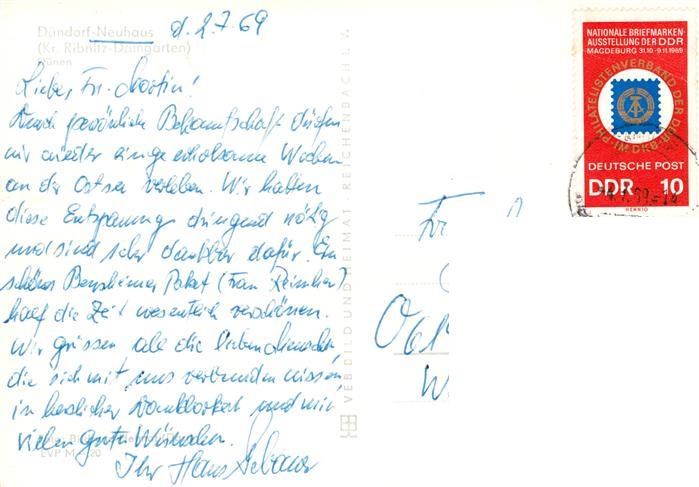 Dändorf-Neuhaus
(Kr. Ribnitz-Damgarten)
Dünen
d. 2.7.69
Liebe, Fr. Martin!
Durch persönliche Bekanntschaft dürfen
wir wieder einige erholsame Wochen
an der Ostsee verleben. Wir hatten
diese Entspannung dringend nötig
und sind sehr dankbar dafür. Ein
schönes Bensheimer Paket (Frau
half die Zeit wesentlich verschönen.
Wir grüssen alle die lieben
die sich mit uns verbunden wissen,
in herzlicher Dankbarkeit und mit
vielen guten Wünschen.
Ihr Hans
EVP M 20
VEB BILD UND HEIMAT REICHENBACH i. V.
NATIONALE BRIEFMARKEN-
AUSSTELLUNG DER DDR
MAGDEBURG 31.10.-9.11.1969
PHILATELISTENVERBAND DER DDR IM DKB
DEUTSCHE POST
DDR 10
HENNIG
Fr
061
W